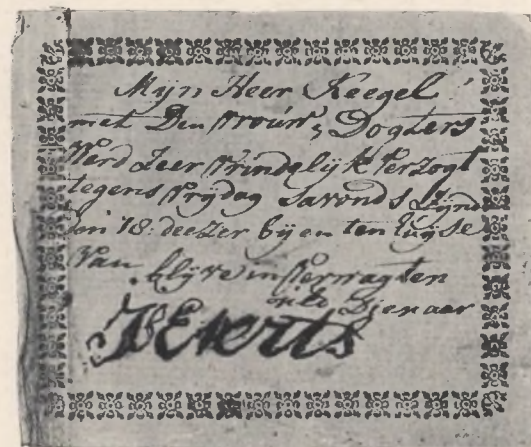 Mijn Heer Keegel
met Den Vrouw, Dogters
Werd Zeer Vrindelijk Verzogt
tegens Vrijdag Savonds Zijnd
den 18: deezer bij en ten Huijse
Van, blijve in Verwagten
Dienaar
Everts